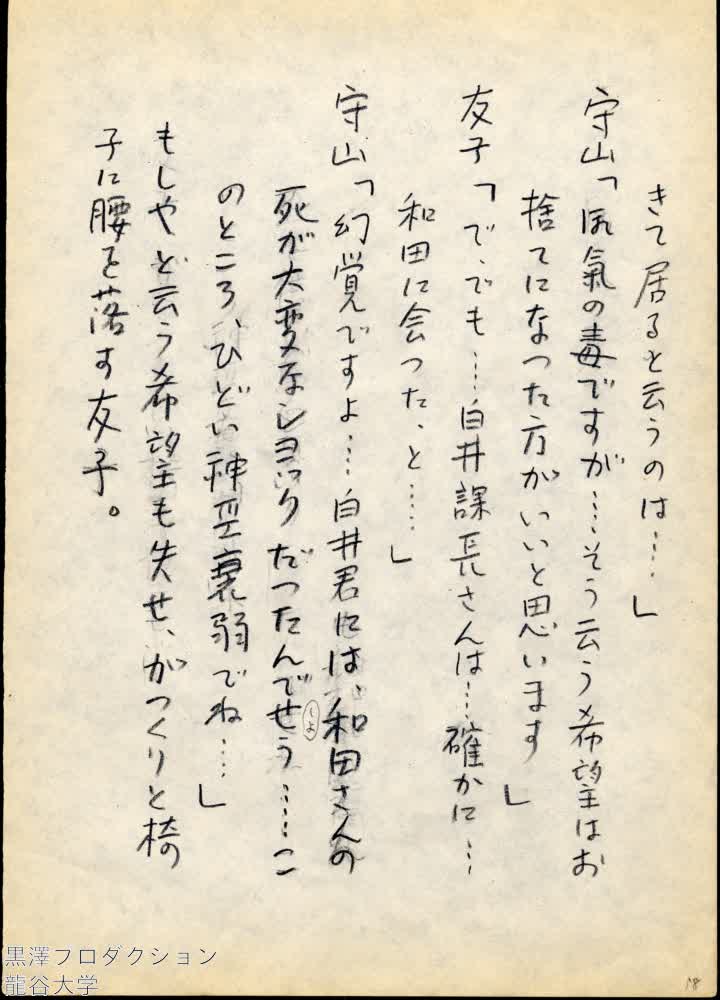 きて居ると云うのは……」
守山「お気の毒ですが……そう云う希望はお
捨てになった方がいいと思います」
友子「で、でも……白井課長さんは……確かに……
和田に会った、と……」
守山「幻覚ですよ……白井君には、和田さんの
死が大変なショックだったんでせう……こ
しよ
のところ、ひどい神至衰弱でね……」
もしやと云う希望も失せ、がつくりと椅
子に腰を落す友子。
18
黒澤プロダクション
龍谷大学